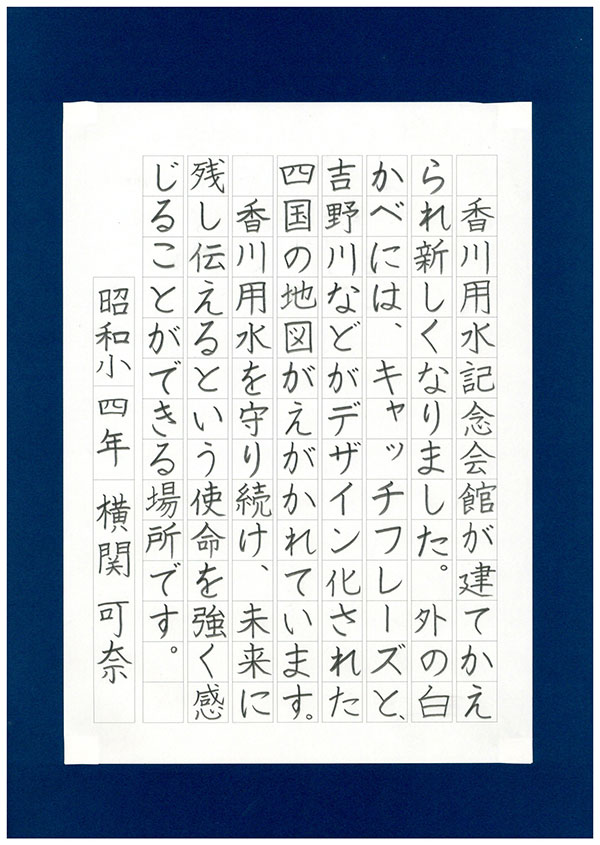 香川用水記念会館が建てかえ
られ新しくなりました。外の白
かべには、キャッチフレーズと、
吉野川などがデザイン化された
四国の地図がえがかれています。
香川用水を守り続け、未来に
残し伝えるという使命を強く感
じることができる場所です。
昭和小四年 横関可奈